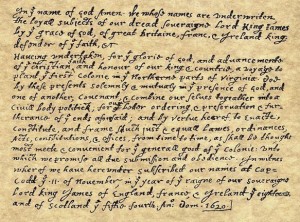 In y̅ name of god Amen. We whose names are underwriten,
the loyall subjects of our dread soveraigne Lord King James
by y̅ grace of god, of great britaine, franc, & Ireland king,
defender of y̅ faith, &c
Haveing undertaken, for y̅ glorie of god, and advancemente
of y̅ christian faith and honour of our king & countrie, a voyage to
plant y̅ first colonie in y̅ Northerne parts of Virginia. Doe
by these presents solemnly & mutualy in y̅ presence of god, and
one of another, covenant, & combine our selves togeather into a
civill body politick; for our better ordering, & preservation & fur-
therance of y̅ ends aforesaid; and by vertue hearof to enacte,
constitute, and frame such just & equall Lawes, ordinances,
Acts, constitutions, & offices, from time to time, as shall be thought
most meete & convenient for y̅ generall good of y̅ colonie: unto
which we promise all due submission and obedience. In witnes
wherof we have hereunder subscribed our names at Cap-
Codd y̅ ·11· of November, in y̅ year of y̅ raigne of our soveraigne
Lord king James of England, france, & Ireland y̅ eighteenth
and of Scotland y̅ fiftie fourth. An̅o: Dom. 1620